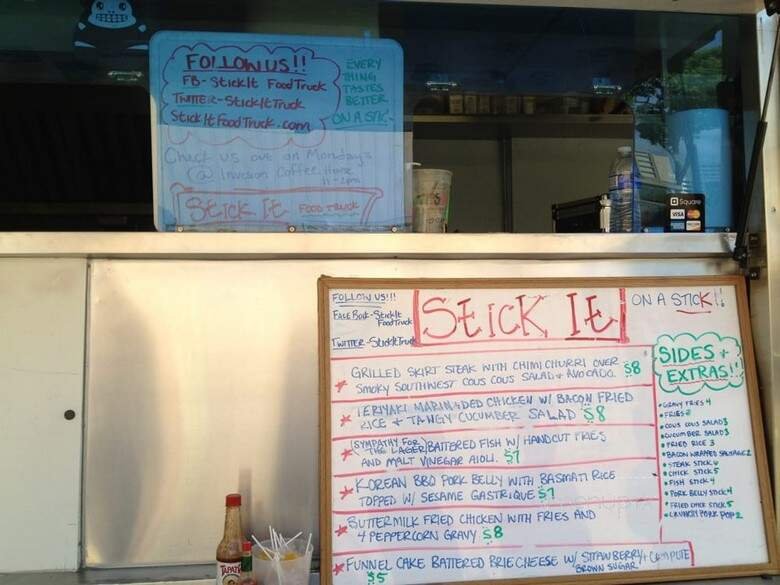 FOLLOW US!!
FB- StickIt Food Truck
TWITTER-StickItTruck
StickItFoodTruck.com
EVERY
THING
TASTES
BETTER
ON A STICK
Check us out on Monday's
@ Invasion Coffee House
STICK IT FOOD TRUCK
Square
VISA
FOLLOW US!!!
FACE Book-StickIt
FoodTruck
TWITTER-StickItTruck
STICK IT
ON A STICK!!
GRILLED SKIRT STEAK WITH CHIMICHURRI OVER
SMOKY SOUTHWEST COUS COUS SALAD + AVOCADO. $8
TERIYAKI MARINADED CHICKEN W/ BACON FRIED
RICE + TANGY CUCUMBER SALAD $8
(SYMPATHY FOR
THE LAGER) BATTERED FISH W/ HANDCUT FRIES
AND MALT VINEGAR AIOLI. $7
KOREAN BBQ PORK BELLY WITH BASMATI RICE
TOPPED W/ SESAME GASTRIQUE $7
BUTTERMILK FRIED CHICKEN WITH FRIES AND
4 PEPPERCORN GRAVY $8
FUNNEL CAKE BATTERED BRIE CHEESE W/ STRAWBERRY COMPUTE
BROWN SUGAR
$5
SIDES +
EXTRAS!!
GRAVY FRIES 4
FRIES 2
COUS COUS SALAD 3
CUCUMBER SALAD 3
FRIED RICE 3
BACON WRAPPED SAUSAGE 2
STEAK STICK 6
CHICK STICK 5
FISH STICK 4
PORK BELLY STICK 4
FRIED CHICK STICK 5
CRUNCHY PORK POP 2
TAPATIO